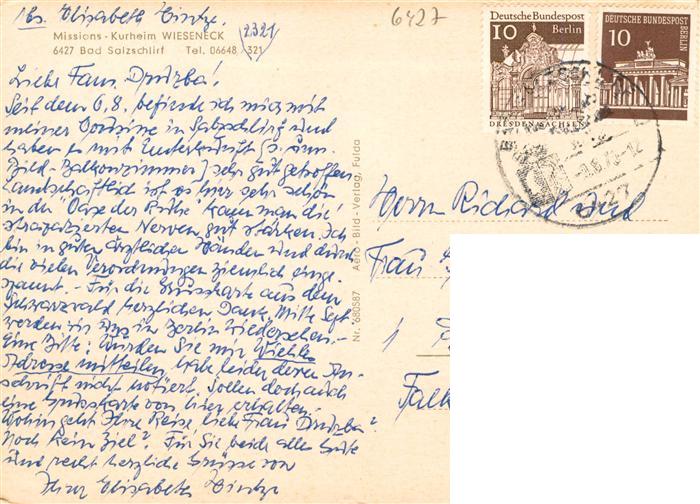 Abs. Elisabeth Hintze.
Missions - Kurheim WIESENECK
6427 Bad Salzschlirf Tel. 06648 / 321
(2321)
6427
Deutsche Bundespost
10 Berlin
DRESDEN/SACHSEN
DEUTSCHE BUNDESPOST
BERLIN
10
6427
Liebe Fam. Druzba!
Seit dem 6.8. befinde ich mich mit
meiner Cousine in Salzschlirf und
haben es mit Unterkunft (s. um.
Bild - Balkonzimmer) sehr gut getroffen
Landschaftlich ist es hier sehr schön
in der "Oase der Ruhe" kann man die
strapazierten Nerven gut stärken. Ich
bin in guten ärztlichen Händen und durch
die vielen Verordnungen ziemlich einge-
spannt. - Für die Grusskarte aus dem
Schwarzwald herzlichen Dank, Mitte Sept.
werden wir uns in Berlin Wiedersehen. -
Eine Bitte: Würden Sie mir Wiehls
Adresse mitteilen, habe leider deren An-
schrift nicht notiert. Sollen doch auch
eine Grusskarte von hier erhalten.
Wohin geht Ihre Reise, liebe Frau Druzba?
Noch kein Ziel? Für Sie beide alles Gute
und recht herzliche Grüsse von
Ihrer Elisabeth Hintze
Nr. 680587 Aero - Bild - Verlag, Fulda
Herrn Richard und
Frau
1
Falk